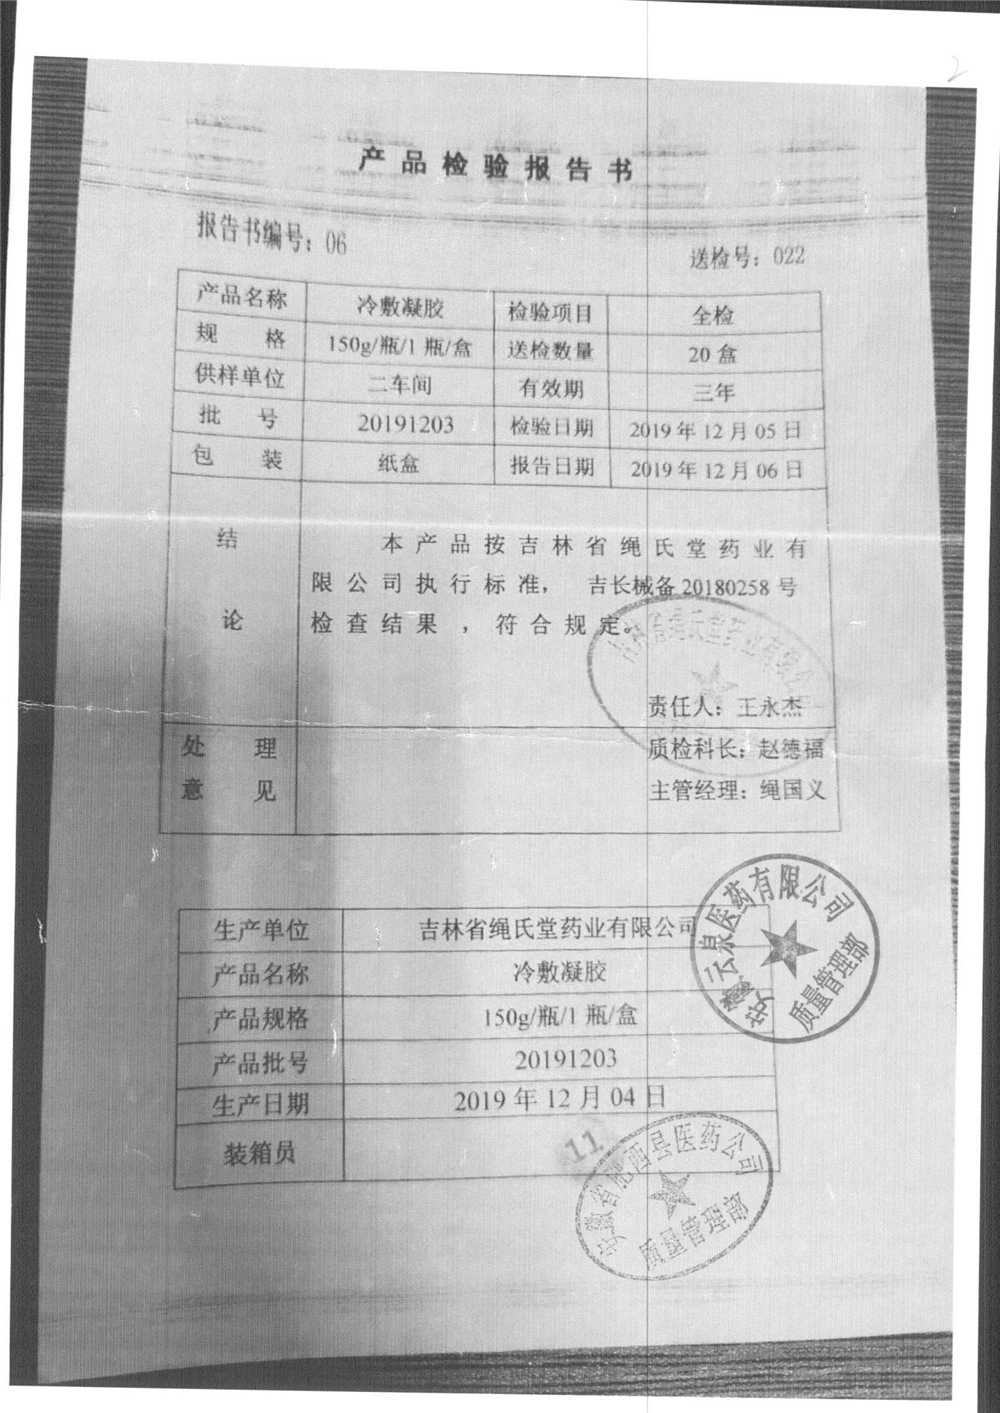 2
产品检验报告书
报告书编号：06
送检号：022
产品名称 冷敷凝胶 检验项目 全检
规格 150g/瓶/1 瓶/盒 送检数量 20 盒
供样单位 二车间 有效期 三年
批号 20191203 检验日期 2019 年 12 月 05 日
包装 纸盒 报告日期 2019 年 12 月 06 日
结论
本产品按吉林省绳氏堂药业有
限公司执行标准， 吉长械备 20180258 号
检查结果，符合规定。
吉林省绳氏堂药业有限公
责任人：王永杰
处理意见
质检科长：赵德福
主管经理：绳国义
生产单位 吉林省绳氏堂药业有限公司
产品名称 冷敷凝胶
产品规格 150g/瓶/1 瓶/盒
产品批号 20191203
生产日期 2019 年 12 月 04 日
装箱员 11
安徽云泉医药有限公司
质量管理部
安徽省肥西县医药公司
质量管理部